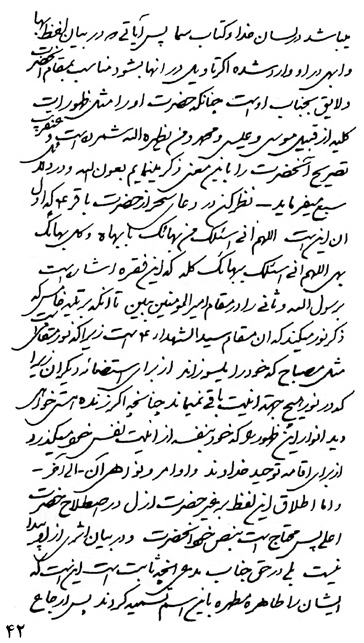 میباشد در لسان خدا و کتاب سما پس آیاتی که در بیان لفظ بها
و ابهی در او وارد شده اگر تاویلی در آنها بشود مناسب بمقام آنحضرت
و لایق بجناب اوست چنانکه حضرت او را مثل ظهورات
کلیه از قبیل موسی و عیسی و محمد و من یظهره الله شمرده است و عنقریب
تصریح آنحضرت را باین معنی ذکر مینمایم بعون الله و در دلائل
سبع میفرماید — نظر کن در دعای سحر از حضرت باقر ع که اول
آن این است اللهم انی اسئلک من بهائک بابهاه و کل بهائک
بهی اللهم انی اسئلک ببهائک کله که این فقره اشاره است
برسول الله و ثانی را در مقام امیر المؤمنین ببین تا آنکه برتبه خامس که
ذکر نور میکند که آن مقام سید الشهداء ع است زیرا که نور مقامی است
مثل مصباح که خود را میسوزاند از برای استضائه دیگران زیرا
که در نور هیچ جهة انیت باقی نمیماند چنانچه اگر زنده هستی خواهی
دید انوار این ظهور را که خود بنفسه از انیت نفس خود میگذرد
از برای اقامه توحید خداوند و اوامر و نواهی آن — الی آخر —
و اما اطلاق این لفظ بر غیر حضرت ازل در اصطلاح حضرت
اعلی پس محتاج است بنص خود آنحضرت و در بیان اثری از او پیدا
نیست بلی در حق جناب آنچه ثابت است این است که
ایشان را طاهره مطهره باین اسم تسمیه کردند پس ارجاع
۴۲